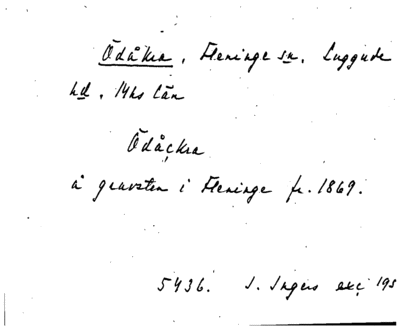 Ödåkra, Fleninge sn, Luggude
hd, Mhs län
Ödåckra
å gravsten i Fleninge fr. 1869.
5436. I. Ingers exc 195